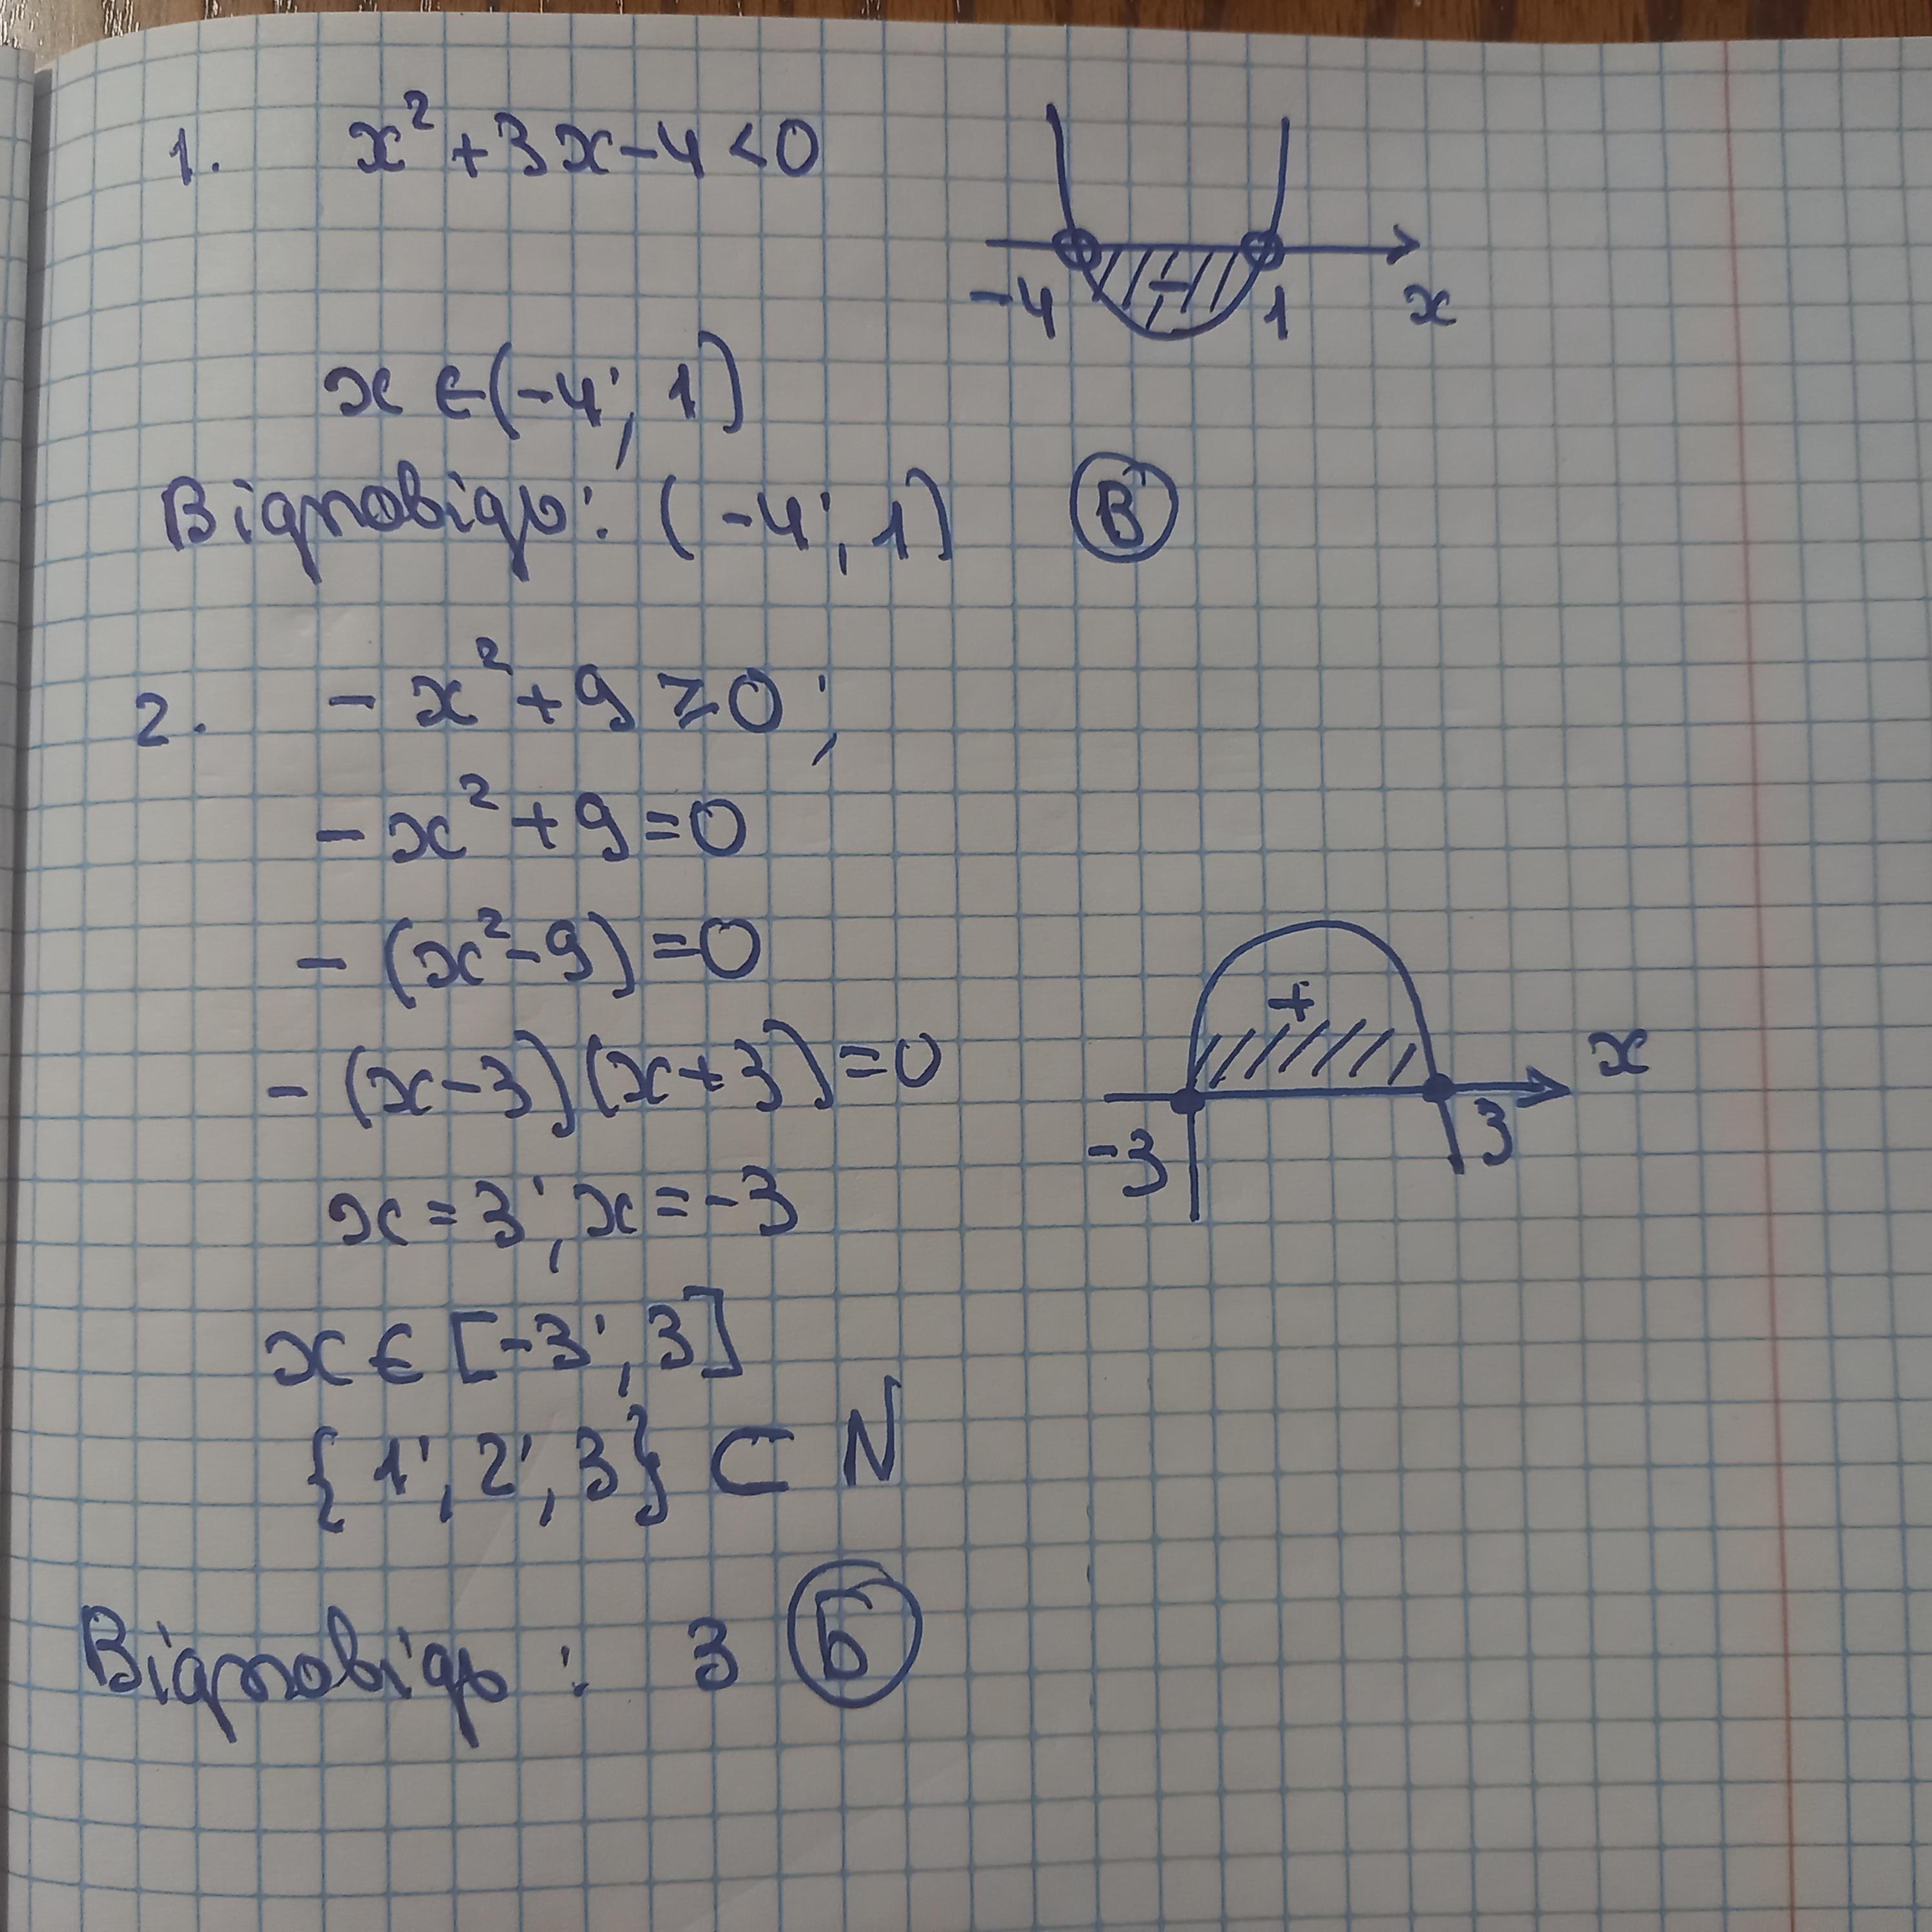 1. x² + 3x - 4 < 0
-4 - 1 x
x ∈ (-4; 1)
Відповідь: (-4; 1) В
2. - x² + 9 ≥ 0;
- x² + 9 = 0
- (x² - 9) = 0
+
- (x - 3)(x + 3) = 0
x
-3 3
x = 3; x = -3
x ∈ [-3; 3]
{1; 2; 3} ⊂ N
Відповідь: 3 Б